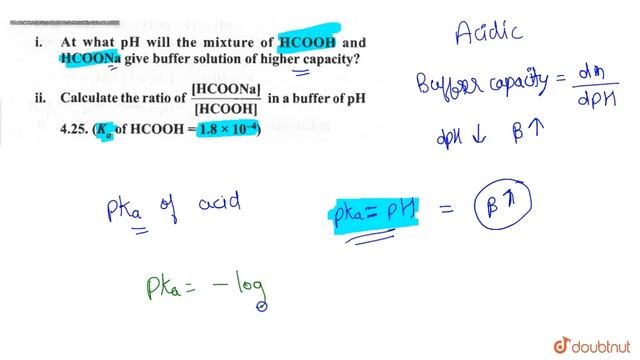 i. At what pH will the mixture of HCOOH and
HCOONa give buffer solution of higher capacity?
ii. Calculate the ratio of [HCOONa]/[HCOOH] in a buffer of pH
4.25. (Ka of HCOOH = 1.8 × 10⁻⁴)
Acidic
Buffer capacity = dn/dpH
dpH ↓ β ↑
pKa of acid
pKa = pH = β ↑
pKa = - log
doubtnut